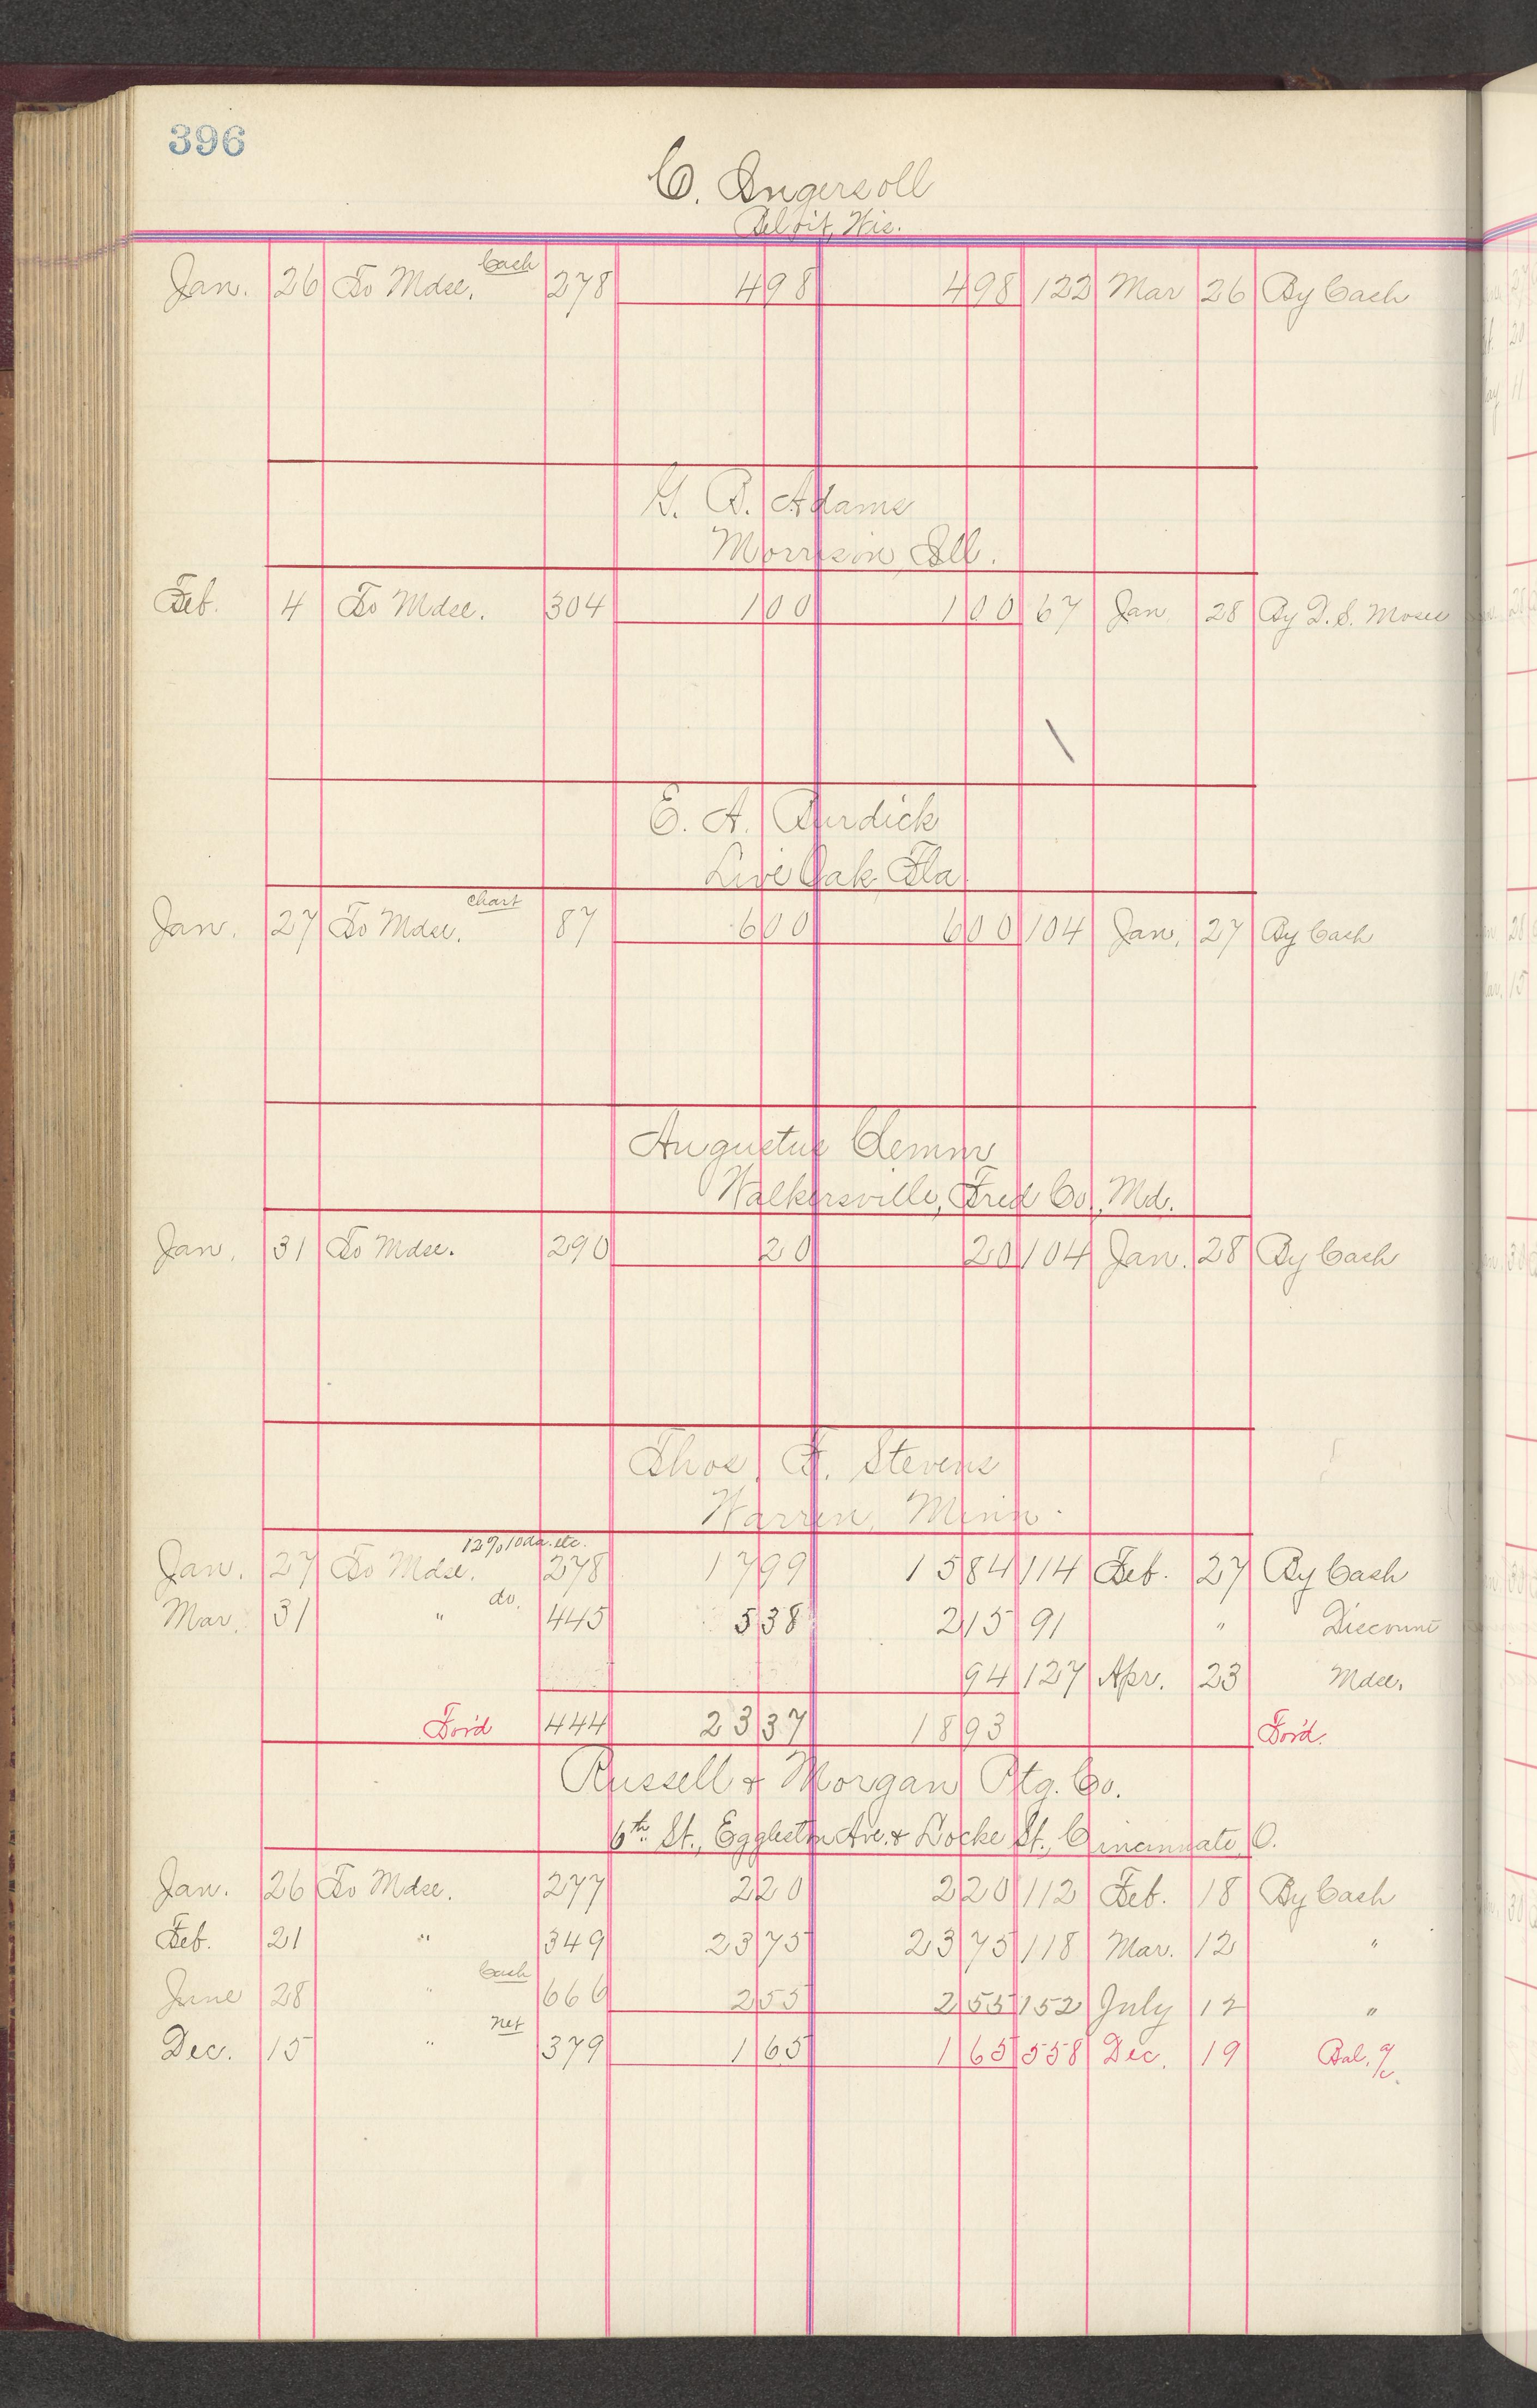 396
C. Ingersoll
Beloit, Wis.
Cash
Jan. 26 To Mdse. 278 4 98 4 98 122 Mar 26 By Cash
G. B. Adams
Morrison Ill.
Feb. 4 To Mdse. 304 1 00 1 00 67 Jan 28 By D. S. Moses
E. A. Burdick
Live Oak, Fla
chart
Jan. 27 To Mdse. 87 6 00 6 00 104 Jan. 27 By Cash
Augustus Clemm
Walkersville, Fred Co, Md.
Jan. 31 To Mdse. 290 20 20 104 Jan. 28 By Cash
Thos. F. Stevens
Warren, Minn.
12% 10 da. etc.
Jan. 27 To Mdse. 278 17 99 15 84 114 Feb. 27 By Cash
do.
Mar. 31 " 445 5 38 2 15 91 " Discount
94 127 Apr. 23 Mdse.
For'd 444 23 37 18 93 For'd.
Russell & Morgan Ptg. Co.
6th St., Eggleston Ave. & Locke St., Cincinnati, O.
Jan. 26 To Mdse. 277 2 20 2 20 112 Feb. 18 By Cash
Feb. 21 " 349 23 75 23 75 118 Mar. 12 "
Cash
June 28 " 666 2 55 2 55 152 July 12 "
net
Dec. 15 " 379 1 65 1 65 558 Dec. 19 Bal. a/c.